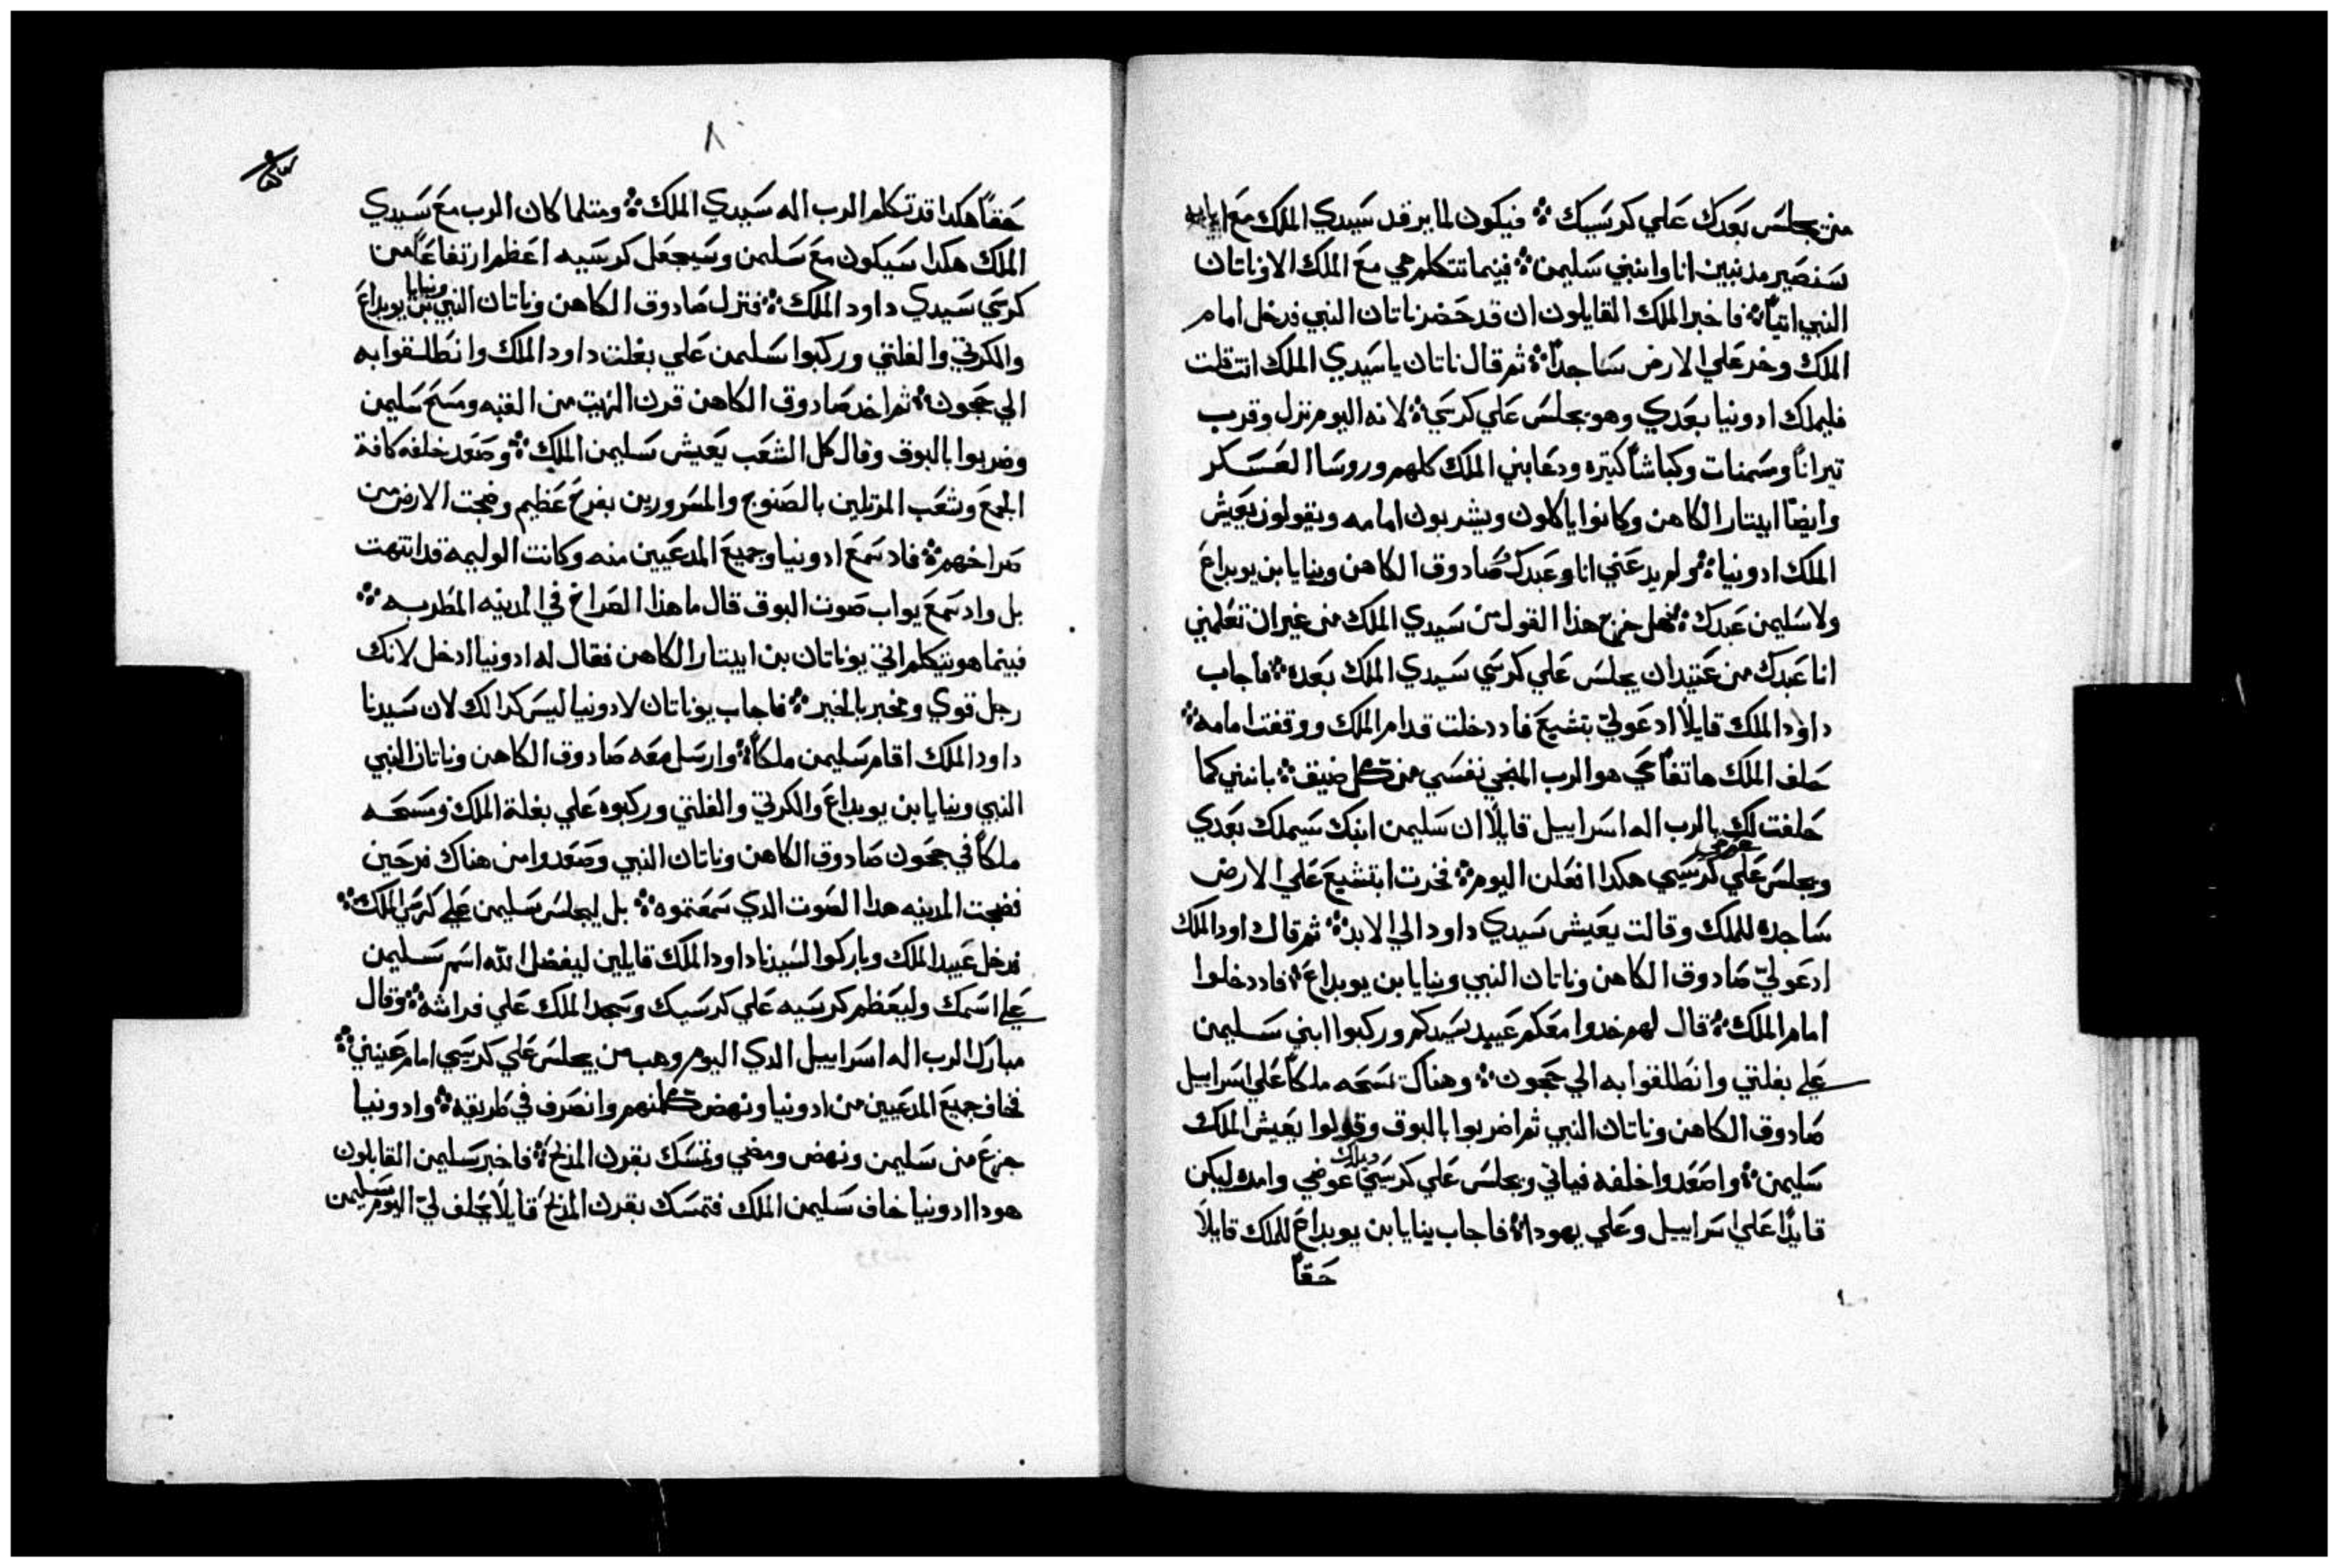 من يجلس بعدك علي كرسيك ܀ فيكون لما يرقد سيدي الملك مع ابايه
سنصير مذنبين انا وابني سليمن ܀ فبينما تتكلم هي مع الملك الا وناتان
النبي اتياً ܀ فاخبر الملك القايلون ان قد حضر ناتان النبي فدخل امام
الملك وخر علي الارض ساجداً ܀ ثم قال ناتان ياسيدي الملك انت قلت
فليملك ادونيا بعدي وهو يجلس علي كرسي ܀ لانه اليوم نزل وقرب
تيراناً ومسمنات وكباشاً كتيره ودعا بني الملك كلهم وروسا العسكر
وايضاً ابيتار الكاهن وكانوا ياكلون ويشربون امامه ويقولون يعيش
الملك ادونيا ܀ ولم يدعني انا وعبدك صادوق الكاهن وبنايا بن يوبداع
ولا سليمن عبدك ܀ فهل خرج هذا القول من سيدي الملك من غير ان تعلمني
انا عبدك من عتيد ان يجلس علي كرسي سيدي الملك بعده ܀ فاجاب
داود الملك قايلاً ادعو لي بتشبع فاد دخلت قدام الملك ووقفت امامه ܀
حلف الملك هاتفاً حي هو الرب المنجي نفسي من كل ضيق ܀ بانني كما
حلفت لك بالرب اله اسراييل قايلاً ان سليمن ابنك سيملك بعدي
عوضي
ويجلس علي كرسيي هكدا افعلن اليوم ܀ فخرت ابتشبع علي الارض
ساجده للملك وقالت يعيش سيدي داود الي الابد ܀ ثم قال داود الملك
ادعو لي صادوق الكاهن وناتان النبي وبنايا بن يوبداع ܀ فاد دخلوا
امام الملك ܀ قال لهم خدوا معكم عبيد سيدكم وركبوا ابني سليمن
علي بغلتي وانطلقوا به الي جحون ܀ وهناك نمسحه ملكاً علي اسراييل
صادوق الكاهن وناتان النبي ثم اضربوا بالبوق وقولوا يعيش الملك
سليمن ܀ واصعدوا خلفه فياتي ويجلس علي كرسيي ويملك عوضي وامده ليكن
قايداً علي اسراييل وعلي يهودا ܀ فاجاب بنايا بن يوبداع للملك قايلاً
حقاً
٨
حقاً هكدا قد تكلم الرب اله سيدي الملك ܀ ومتلما كان الرب مع سيدي
الملك هكدا سيكون مع سليمن وسيجعل كرسيه اعظم ارتفاعاً من
كرسي سيدي داود الملك ܀ فنزل صادوق الكاهن وناتان النبي وبنايا بن يوبداع
والكرتي والفلتي وركبوا سليمن علي بغلت داود الملك وانطلقوا به
الي جحون ܀ ثم اخد صادوق الكاهن قرن الزيت من القبه ومسح سليمن
وضربوا بالبوق وقال كل الشعب يعيش سليمن الملك ܀ وصعد خلفه كافة
الجمع وشعب المرتلين بالصنوج والمسرورين بفرح عظيم وضجت الارض من
صراخهم ܀ فاد سمع ادونيا وجميع المدعيين منه وكانت الوليمة قد انتهت
بل واد سمع يواب صوت البوق قال ما هذا الصراخ في المدينه المطربه ܀
فبينما هو يتكلم اتي يوناتان بن ابيتار الكاهن فقال له ادونيا ادخل لانك
رجل قوي ومخبر بالخير ܀ فاجاب يوناتان لادونيا ليس كدالك لان سيدنا
داود الملك اقام سليمن ملكاً ܀ وارسل معه صادوق الكاهن وناتان النبي
النبي وبنايا بن يوبداع والكرتي والفلتي وركبوه علي بغلة الملك ومسحه
ملكاً في جحون صادوق الكاهن وناتان النبي وصعدوا من هناك فرحين
فضجت المدينه هدا الصوت الدي سمعتموه ܀ بل ليجلس سليمن علي كرسي الملك ܀
فدخل عبيد الملك وباركوا لسيدنا داود الملك قايلين ليفضل الله اسم سليمن
علي اسمك وليعظم كرسيه علي كرسيك وسجد الملك علي فراشه ܀ وقال
مبارك الرب اله اسراييل الدي اليوم وهب من يجلس علي كرسيي امام عينيي ܀
فخاف جميع المدعيين من ادونيا ونهض كلمنهم وانصرف في طريقه ܀ وادونيا
جزع من سليمن ونهض ومضي وتمسك بقرن المذبح ܀ فاخبر سليمن القايلون
هودا ادونيا خاف سليمن الملك فتمسك بقرن المذبح قايلاً يحلف لي اليوم سليمن